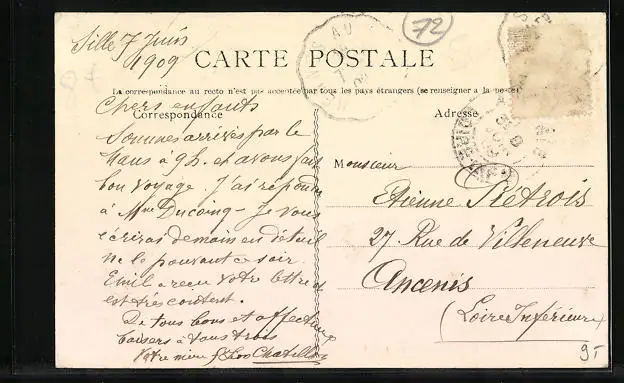 Sillé 7 Juin
1909
72
CARTE POSTALE
La correspondance au recto n'est pas acceptée par tous les pays étrangers (se renseigner à la poste)
Correspondance
Adresse
Chers enfants
Sommes arrivés par le
Mans à 9h. et avons fait
bon voyage. J'ai répondu
à Mme Ducoing - Je vous
écrirai demain en détail
ne le pouvant ce soir.
Emile a reçu votre lettre et
est très content.
De tous bons et affectueux
baisers à tous trois
Votre mère
Chatillon
Monsieur
Etienne Rétrois
27 Rue de Villeneuve
Ancenis
(Loire Inférieure)
9-